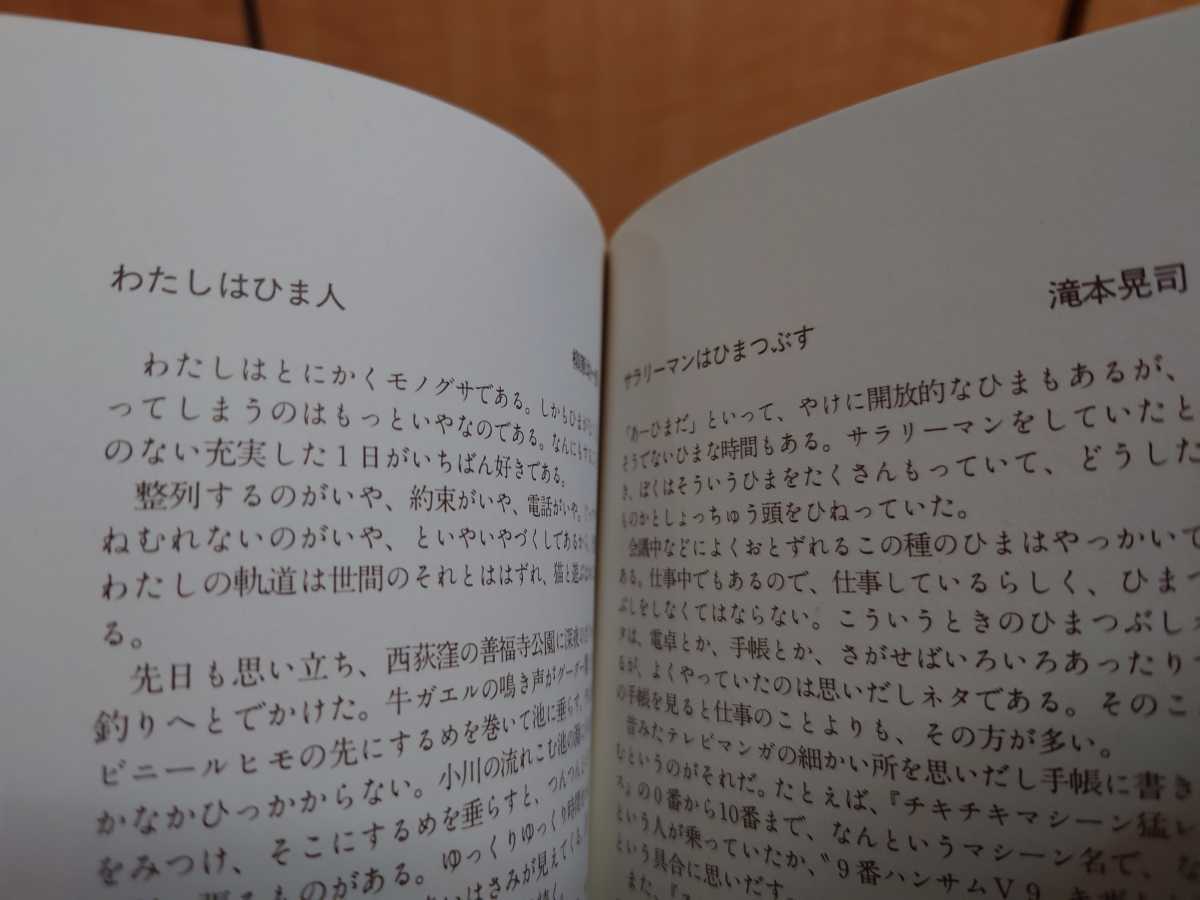 わたしはひま人
わたしはとにかくモノグサである。しかもひまが
ってしまうのはもっといやなのである。なんにも
のない充実した1日がいちばん好きである。
整列するのがいや、約束がいや、電話がいや。
ねむれないのがいや、といやいやづくしであるから、
わたしの軌道は世間のそれとははずれ、猫と遊
る。
先日も思い立ち、西荻窪の善福寺公園に深夜
釣りへとでかけた。牛ガエルの鳴き声がグーグー
ビニールヒモの先にするめを巻いて池に垂らす。
かなかひっかからない。小川の流れこむ池の
をみつけ、そこにするめを垂らすと、つんつん
るものがある。ゆっくりゆっくり時間
はさみが見えてくる。
滝本晃司
サラリーマンはひまつぶす
「あーひまだ」といって、やけに開放的なひまもあるが、
そうでないひまな時間もある。サラリーマンをしていたと
き、ぼくはそういうひまをたくさんもっていて、どうした
ものかとしょっちゅう頭をひねっていた。
会議中などによくおとずれるこの種のひまはやっかいで
ある。仕事中でもあるので、仕事しているらしく、ひまつ
ぶしをしなくてはならない。こういうときのひまつぶしネ
タは、電卓とか、手帳とか、さがせばいろいろあったりす
るが、よくやっていたのは思いだしネタである。そのころ
の手帳を見ると仕事のことよりも、その方が多い。
昔みたテレビマンガの細かい所を思いだし手帳に書き
むというのがそれだ。たとえば、『チキチキマシーン猛レ
ス』の0番から10番まで、なんというマシーン名で、な
という人が乗っていたか、〝9番ハンサムV9
という具合に思いだす。
また、